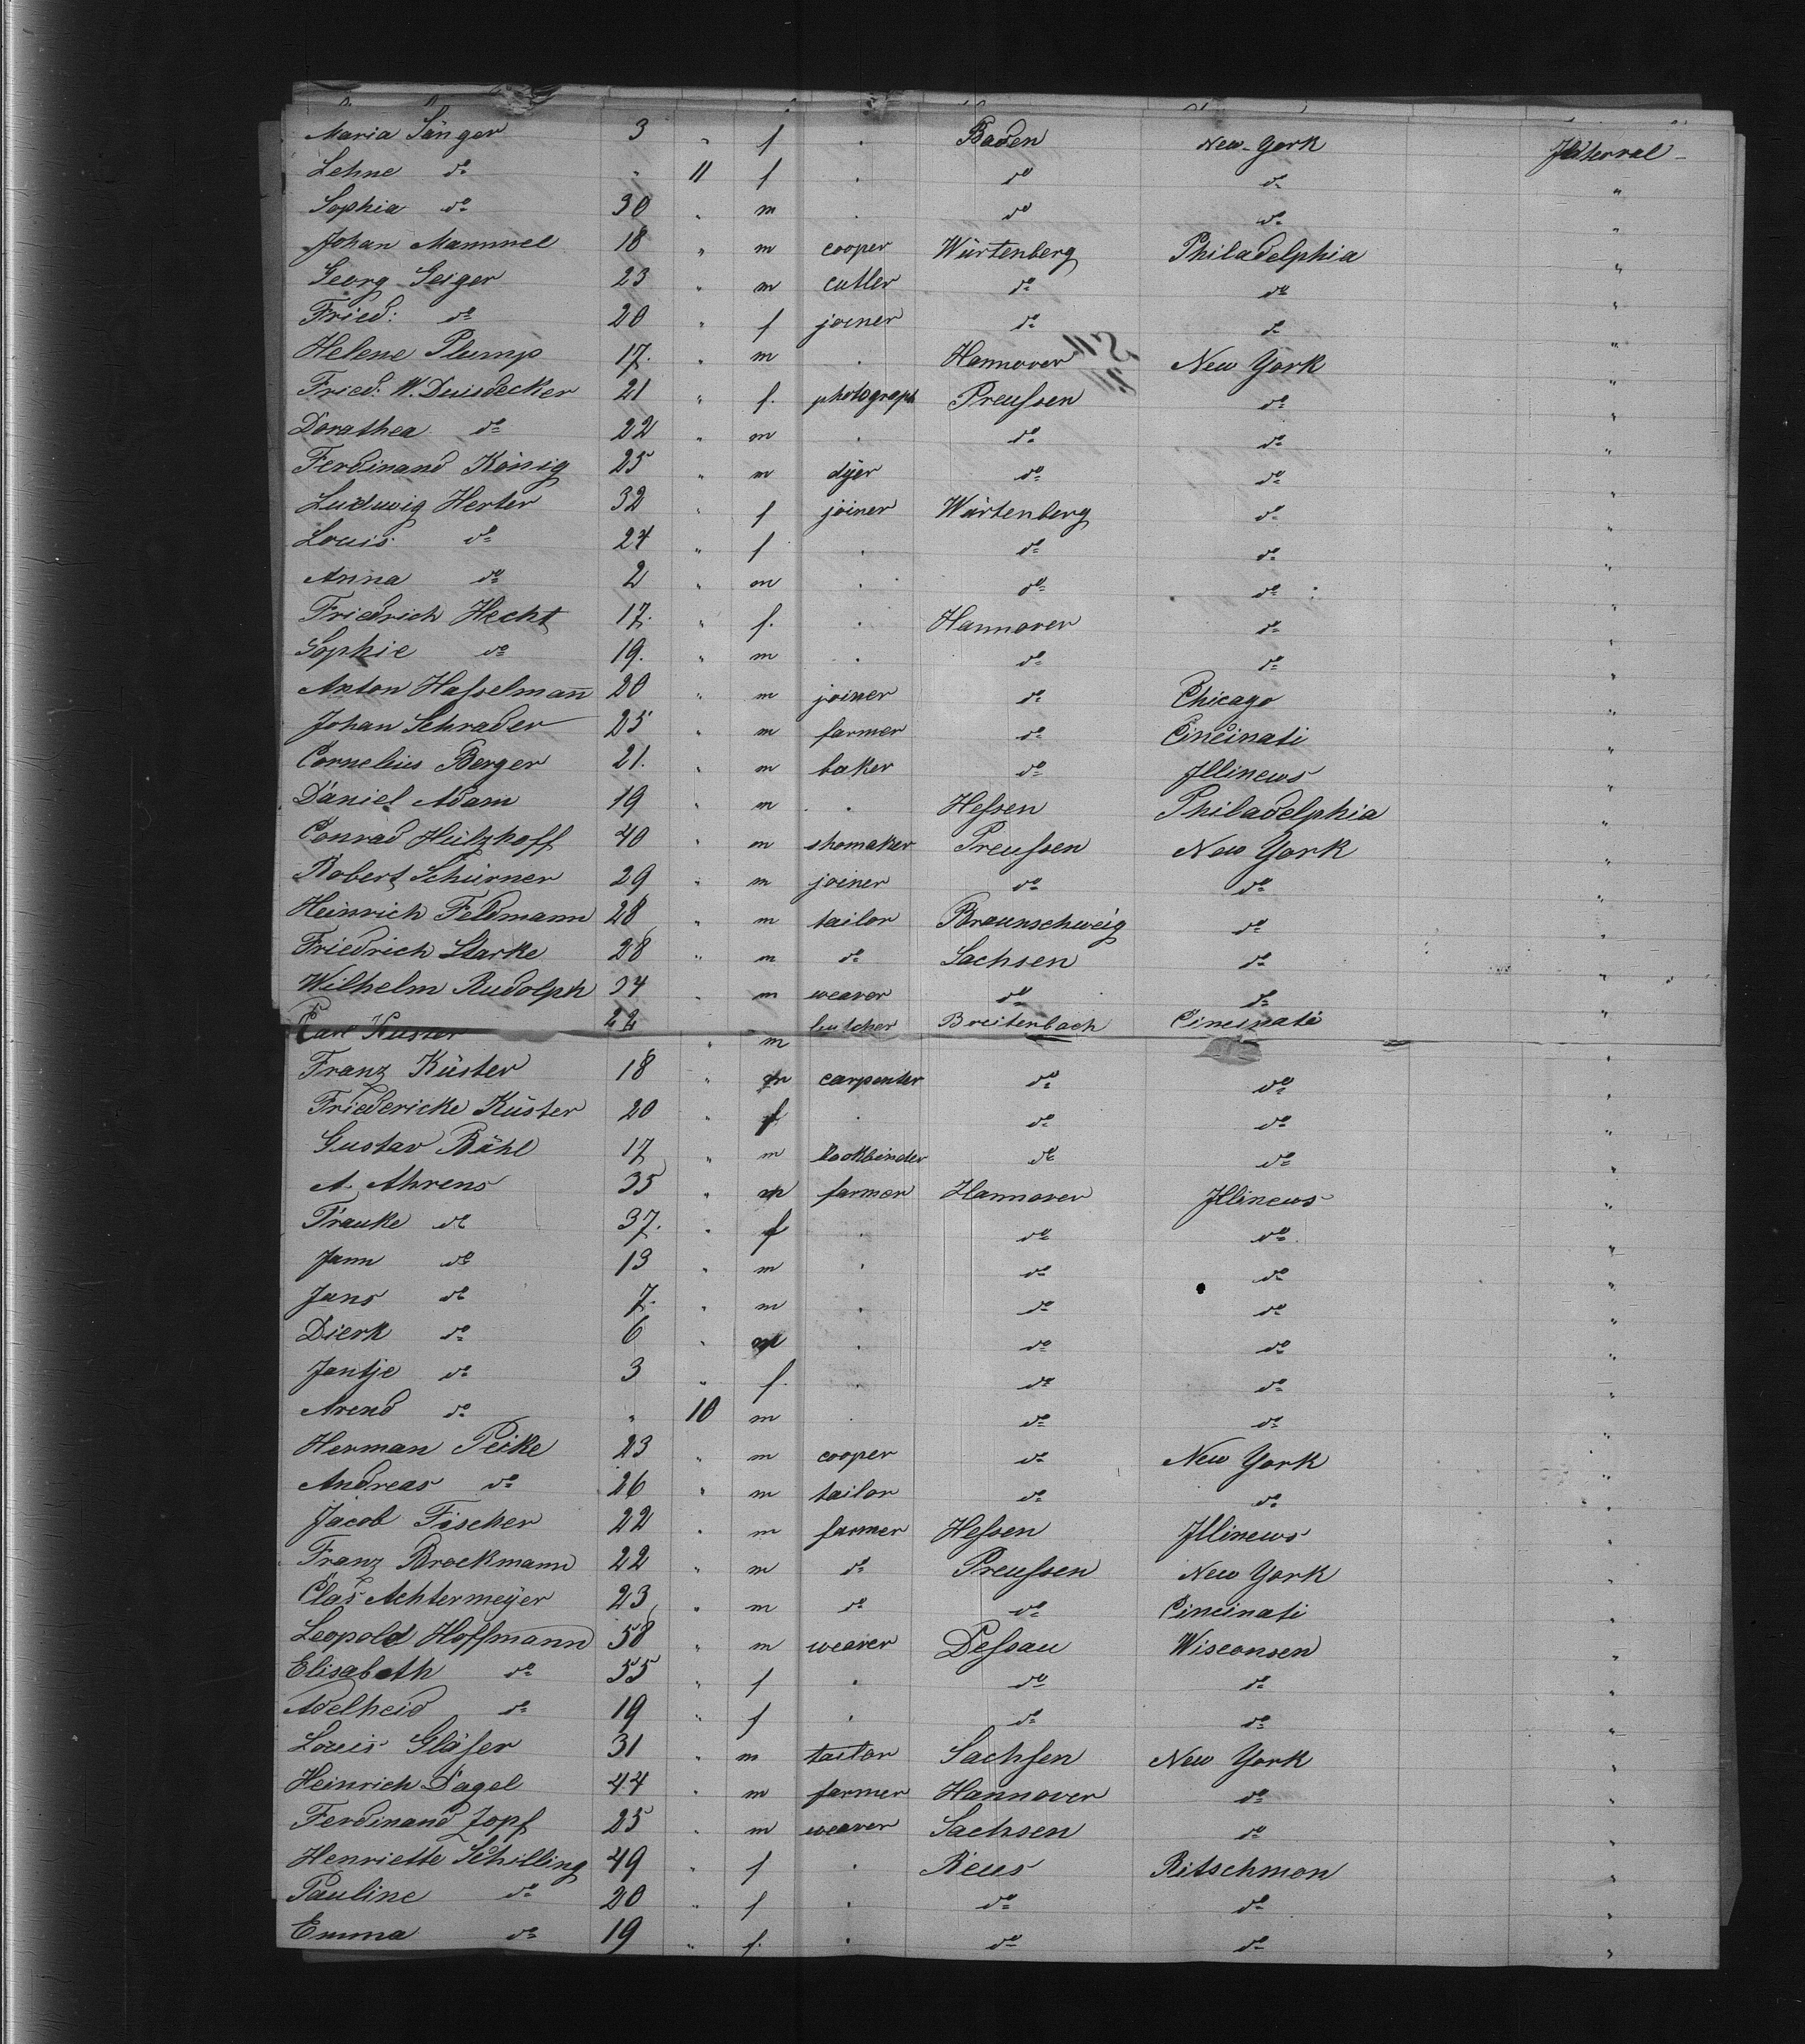 Maria Sänger 3 " f . Baden New-York
Lehne do " 11 f . do do "
Sophia do 30 " m . do do "
Johan Mammel 18 " m cooper Würtenberg Philadelphia "
Georg Geiger 23 " m cutler do do "
Fried: do 20 " f joiner do do "
Helene Plump 17. " m . Hannover New York "
Fried: W. Duisdecker 21 " f. photograph Preussen do "
Dorathea do 22 " m . do do "
Ferdinand König 25 " m dÿer do do "
Ludwig Herter 32 " f joiner Würtenberg do "
Louis do 24 " f . do do "
Anna do 2 " m . do do "
Friedrich Hecht 17. " f. . Hannover do "
Sophie do 19. " m . do do "
Anton Hasselmann 20 " m joiner do Chicago "
Johan Schrader 25 " m farmer do Cincinati "
Cornelius Berger 21. " m baker do Illinews "
Daniel Adam 19 " m . Hessen Philadelphia "
Conrad Hülzhoff 40 " m shomaker Preussen New York "
Robert Schürner 29 " m joiner do do "
Heinrich Feldmann 28 " m tailor Braunschweig do "
Friedrich Starke 28 " m do Sachsen do "
Wilhelm Rudolph 34 " m weaver do do "
Carl Küster 22 " m butcher Breitenbach Cincinati "
Franz Küster 18 " m carpenter do do "
Friedericke Küster 20 " f . do do "
Gustav Bähl 17 " m bookbinder do do "
A. Ahrens 35 " m farmer Hannover Illinews "
Frauke do 37. " f . do do "
Jann do 13 " m . do do "
Jans do 7. " m . do do "
Dierk do 6 " m . do do "
Jantje do 3 " f. . do do "
Arend do " 10 m . do do "
Herman Peike 23 " m cooper do New York "
Andreas do 26 " m tailor do do "
Jacob Fischer 22 " m farmer Hessen Illinews "
Franz Brockmann 22 " m do Preussen New York "
Clas Achtermeÿer 23 " m do do Cincinati "
Leopold Hoffmann 58 " m weaver Dessau Wisconsen "
Elisabeth do 55 " f . do do "
Adelheid do 19 " f . do do "
Louis Gläser 31 " m tailor Sachsen New York "
Heinrich Dagel 44 " m farmer Hannover do "
Ferdinand Zopf 25 " m weaver Sachsen do "
Henriette Schilling 49 " f . Reus Ritschmon "
Pauline do 20 " f . do do "
Emma do 19 " f. . do do "